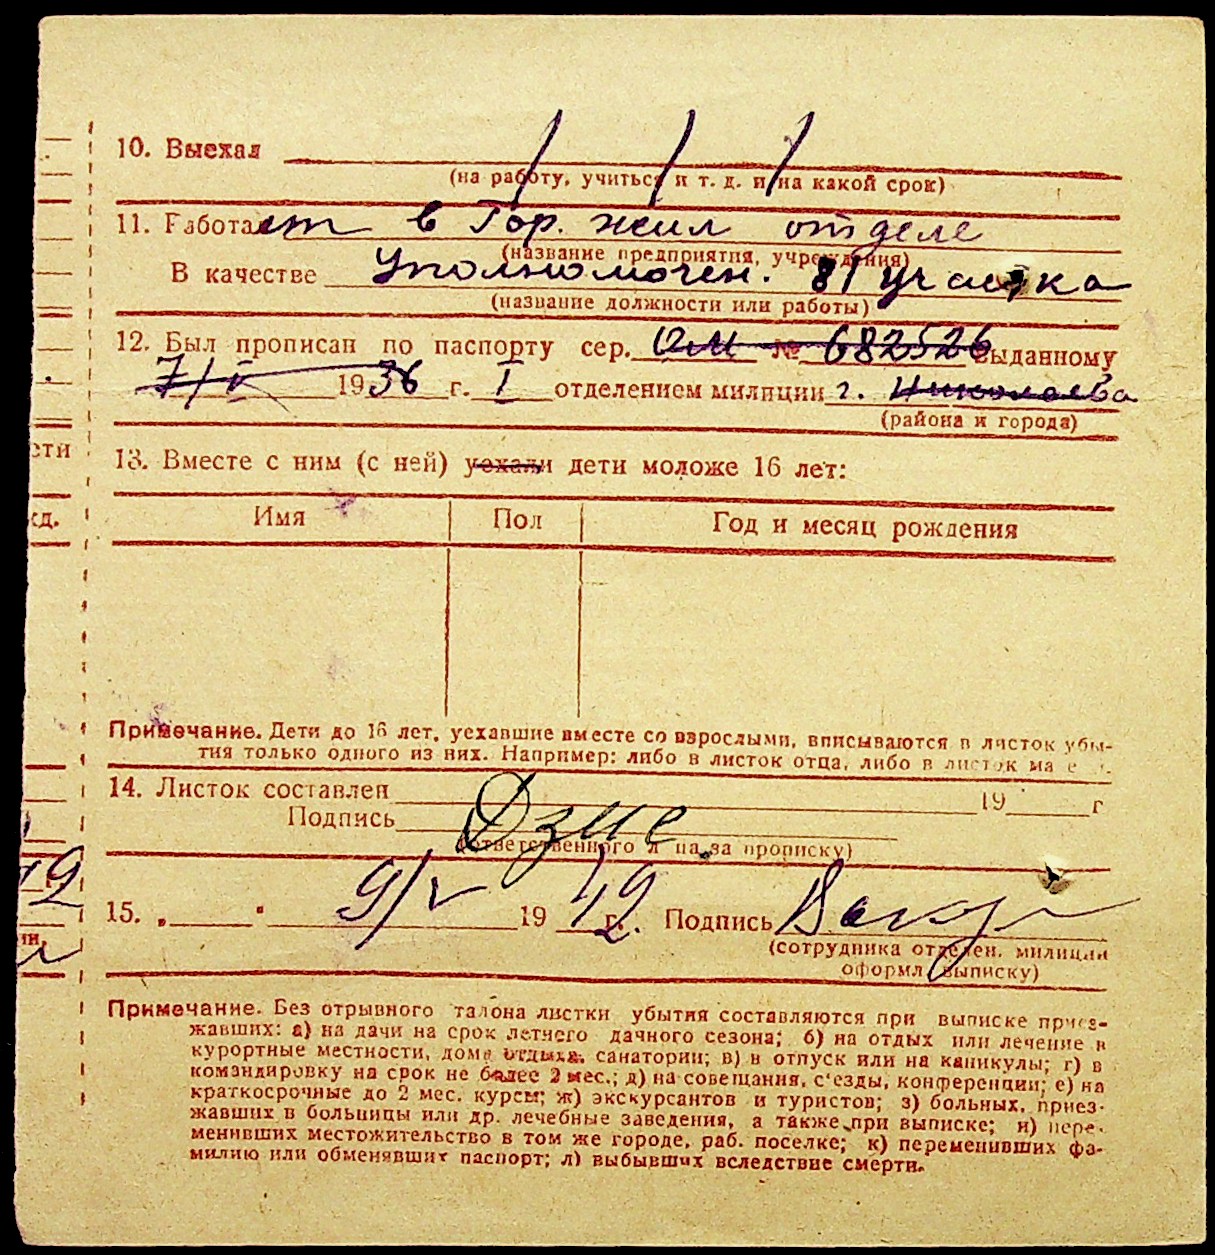 10. Выехал / / /
(на работу, учиться и т. д. и на какой срок)
11. Работает в Гор. жил отделе
(название предприятия, учреждения)
В качестве Уполномочен. 81 участка
(название должности или работы)
12. Был прописан по паспорту сер. ОМ № 682526 выданному
7/V 1936 г. I отделением милиции г. Николаева
(района и города)
сти
13. Вместе с ним (с ней) уехали дети моложе 16 лет:
жд.
Имя Пол Год и месяц рождения
Примечание. Дети до 16 лет, уехавшие вместе со взрослыми, вписываются в листок убы-
тия только одного из них. Например: либо в листок отца, либо в листок
14. Листок составлен 19 г
Подпись
(ответственного за прописку)
15. „ " 9/V 19 42 г. Подпись
(сотрудника отделен. милиции
оформл. выписку)
Примечание. Без отрывного талона листки убытия составляются при выписке приез-
жавших: а) на дачи на срок летнего дачного сезона; б) на отдых или лечение в
курортные местности, дома отдыха, санатории; в) в отпуск или на каникулы; г) в
командировку на срок не более 2 мес.; д) на совещания, с'езды, конференции; е) на
краткосрочные до 2 мес. курсы; ж) экскурсантов и туристов; з) больных, приез-
жавших в больницы или др. лечебные заведения, а также при выписке; и) пере-
менивших местожительство в том же городе, раб. поселке; к) переменивших фа-
милию или обменявших паспорт; л) выбывших вследствие смерти.